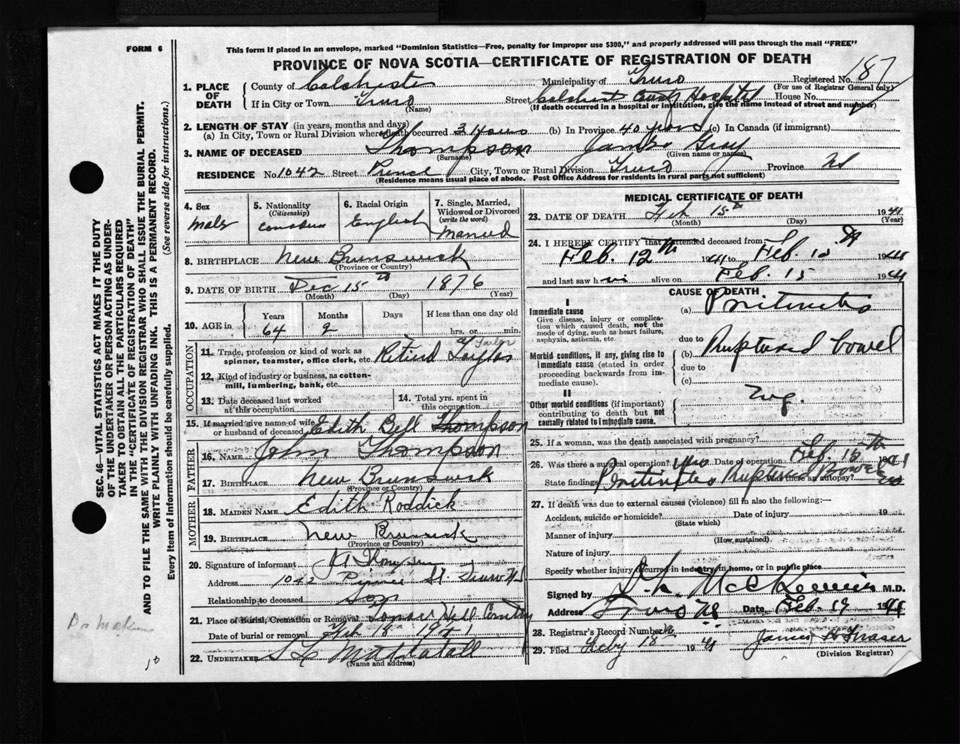 FORM 6
This form if placed in an envelope, marked "Dominion Statistics—Free, penalty for improper use $300," and properly addressed will pass through the mail "FREE"
PROVINCE OF NOVA SCOTIA—CERTIFICATE OF REGISTRATION OF DEATH
Registered No. 187
(For use of Registrar General only)
1. PLACE OF DEATH
County of Colchester Municipality of Truro
If in City or Town Truro Street Hospital House No.
(Name) (If death occurred in a hospital or institution, give the name instead of street and number)
2. LENGTH OF STAY (in years, months and days)
(a) In City, Town or Rural Division where death occurred 3 years (b) In Province 40 years (c) In Canada (if immigrant)
3. NAME OF DECEASED Thompson James Gray
(Surname) (Given name or names)
RESIDENCE No. 1042 Street Prince City, Town or Rural Division Truro Province NS
(Residence means usual place of abode. Post Office Address for residents in rural parts not sufficient)
4. Sex Male
5. Nationality (Citizenship)
6. Racial Origin English
7. Single, Married, Widowed or Divorced (write the word) Married
8. BIRTHPLACE New Brunswick
(Province or Country)
9. DATE OF BIRTH Dec 15th 1876
(Month) (Day) (Year)
10. AGE in Years Months Days If less than one day old
64 2 hrs. or min.
OCCUPATION
11. Trade, profession or kind of work as spinner, teamster, office clerk, etc. Retired Tailor
12. Kind of industry or business, as cotton-mill, lumbering, bank, etc.
13. Date deceased last worked at this occupation
14. Total yrs. spent in this occupation
15. If married give name of wife or husband of deceased Edith Bell Thompson
FATHER
16. NAME John Thompson
17. BIRTHPLACE New Brunswick
(Province or Country)
MOTHER
18. MAIDEN NAME Edith Roddick
19. BIRTHPLACE New Brunswick
(Province or Country)
20. Signature of informant
Address 1042 Prince St. Truro NS
Relationship to deceased Son
21. Place of Burial, Cremation or Removal
Date of burial or removal Feb 18 1941
22. UNDERTAKER Mattatall
(Name and address)
MEDICAL CERTIFICATE OF DEATH
23. DATE OF DEATH Feb 15th 1941
(Month) (Day) (Year)
24. I HEREBY CERTIFY that I attended deceased from
Feb. 12th 1941 to Feb. 15 1941
and last saw h im alive on Feb 15 1941
CAUSE OF DEATH
I
Immediate cause
Give disease, injury or complication which caused death, not the mode of dying, such as heart failure, asphyxia, asthenia, etc.
(a)
due to
Morbid conditions, if any, giving rise to immediate cause (stated in order proceeding backwards from immediate cause).
(b) Ruptured bowel
due to
(c)
II
Other morbid conditions (if important) contributing to death but not causally related to immediate cause.
25. If a woman, was the death associated with pregnancy?
26. Was there a surgical operation? Yes Date of operation Feb. 15th 1941
State findings Ruptured bowel Was there an autopsy?
27. If death was due to external causes (violence) fill in also the following:—
Accident, suicide or homicide? Date of injury 19
(State which)
Manner of injury
(How sustained)
Nature of injury
Specify whether injury occurred in industry, in home, or in public place
Signed by M.D.
Address Truro NS Date Feb. 17 1941
28. Registrar's Record Number
29. Filed Feby 18 1941 James H Fraser
(Division Registrar)
SEC. 46—VITAL STATISTICS ACT MAKES IT THE DUTY
OF THE UNDERTAKER OR PERSON ACTING AS UNDER-
TAKER TO OBTAIN ALL THE PARTICULARS REQUIRED
IN THE "CERTIFICATE OF REGISTRATION OF DEATH"
AND TO FILE THE SAME WITH THE DIVISION REGISTRAR WHO SHALL ISSUE THE BURIAL PERMIT.
WRITE PLAINLY WITH UNFADING INK. THIS IS A PERMANENT RECORD.
Every Item of Information should be carefully supplied. (See reverse side for instructions.)
10